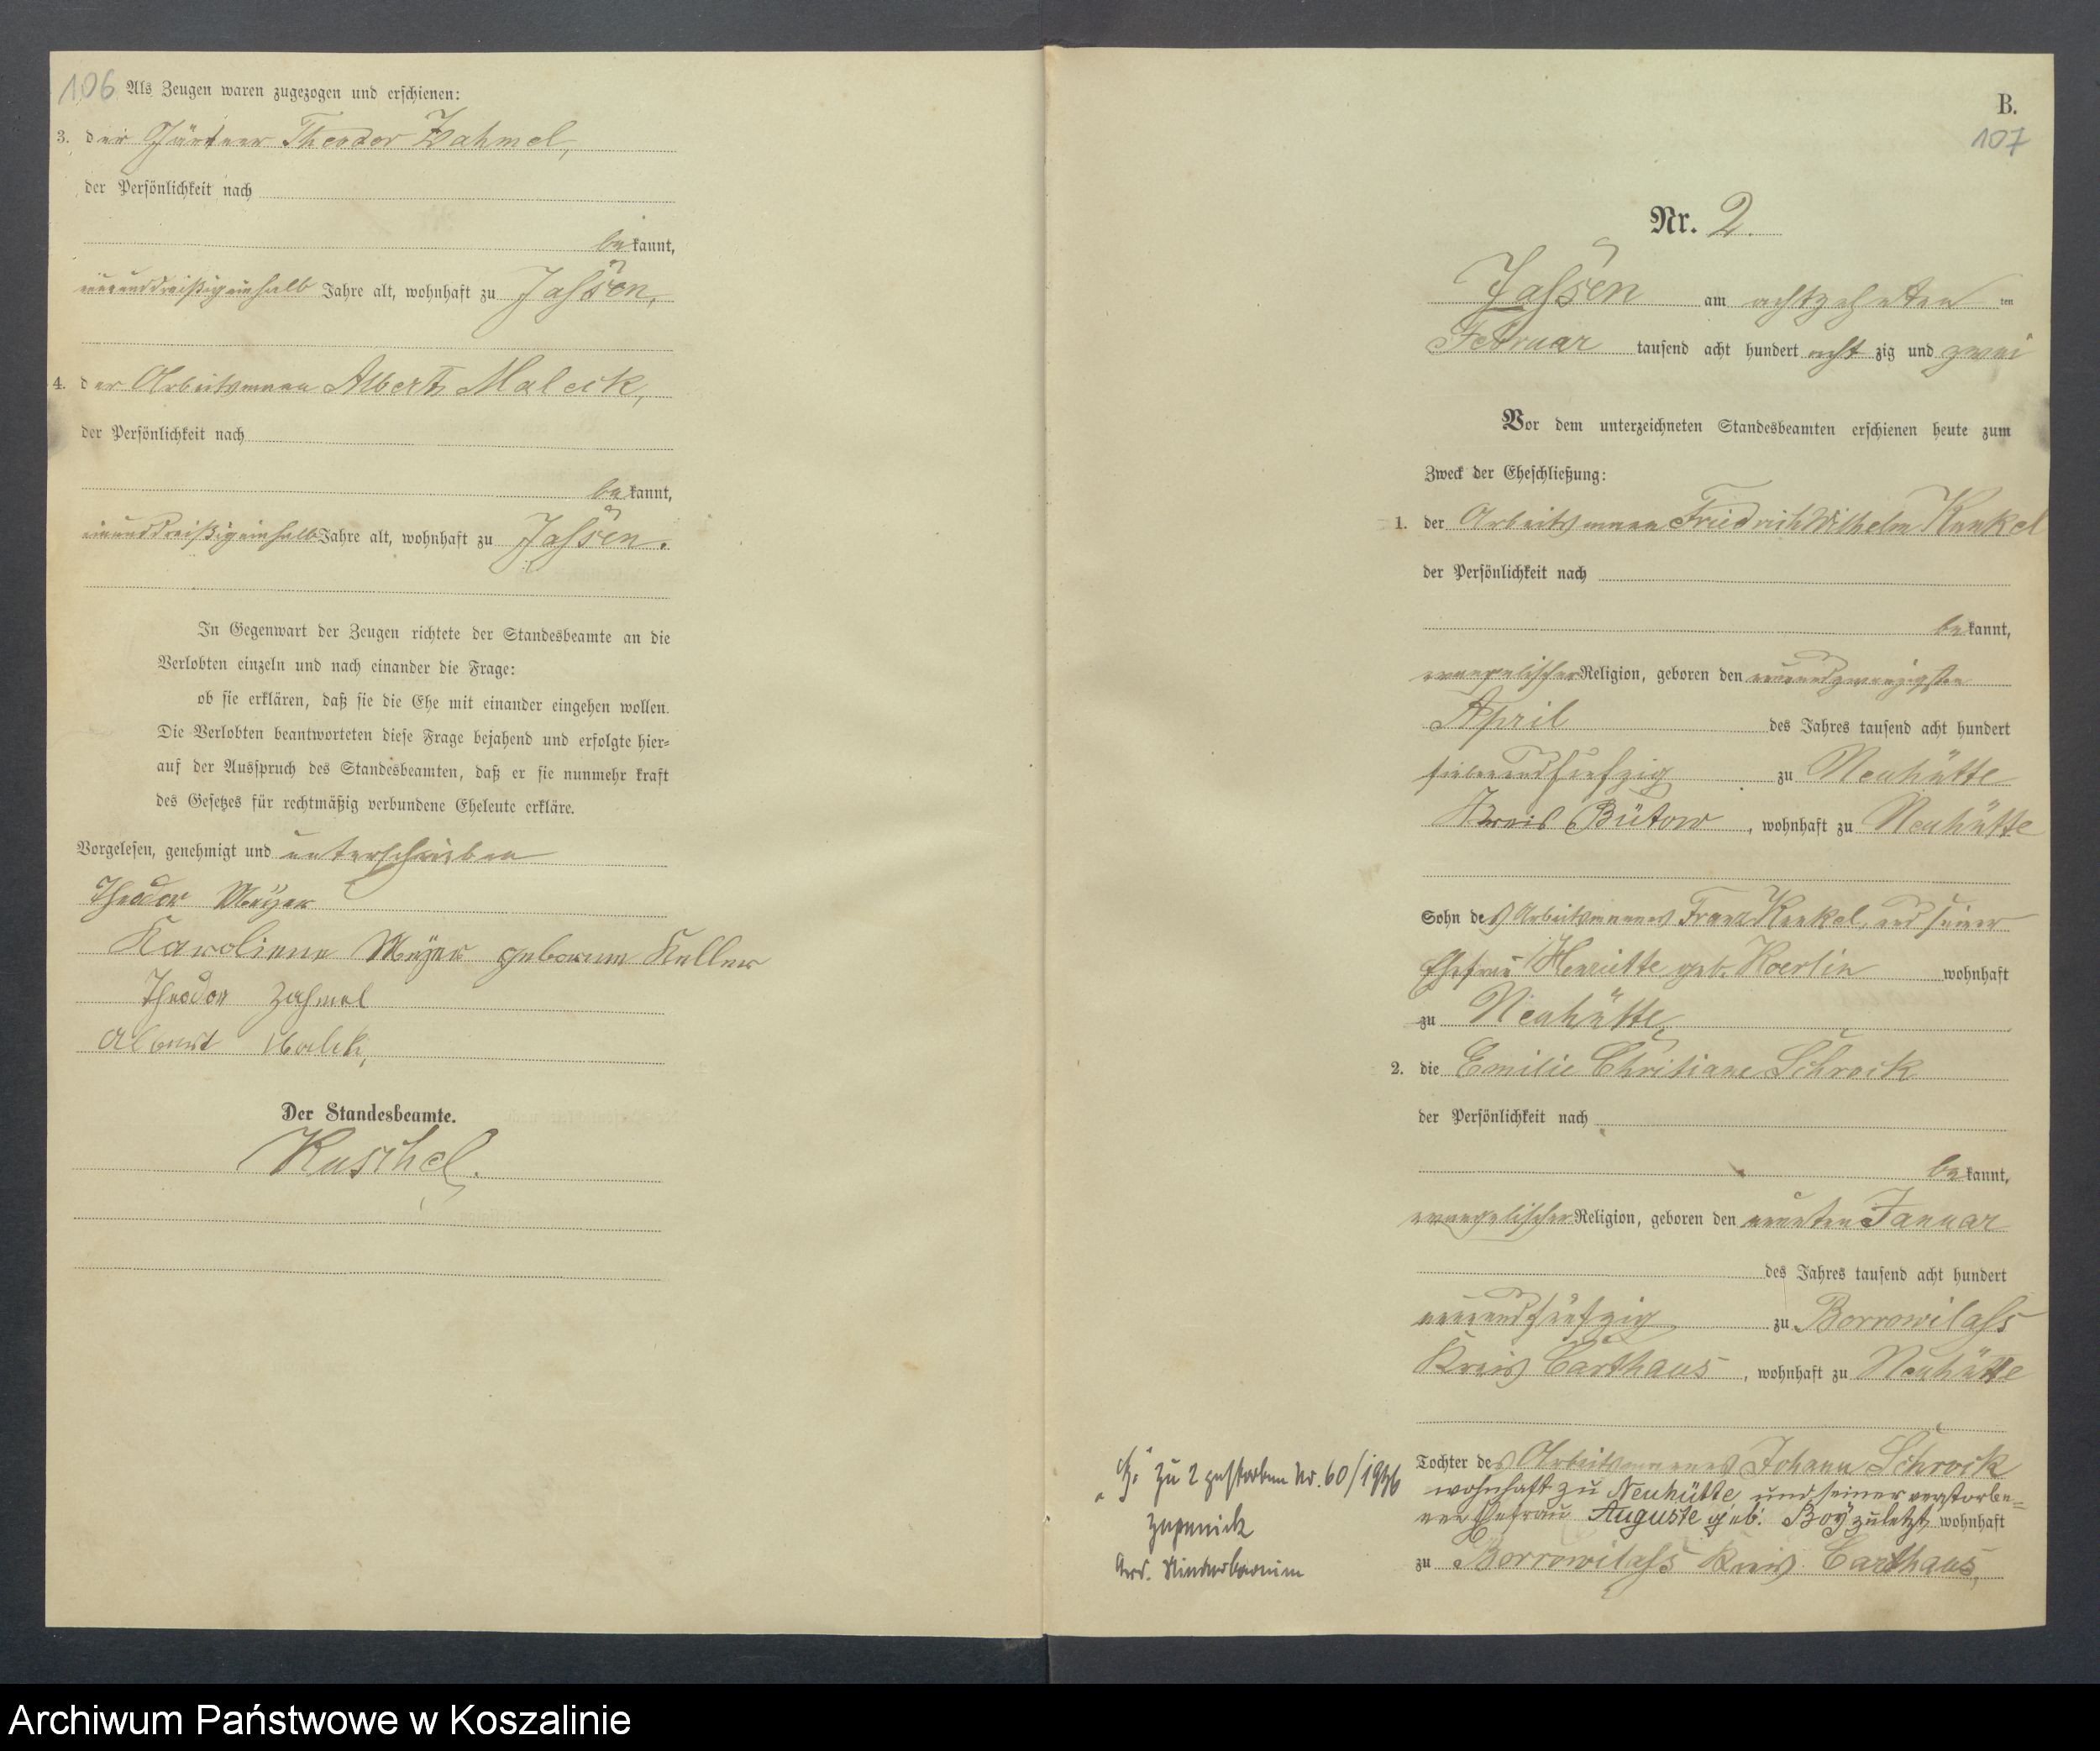 106 Als Zeugen waren zugezogen und erschienen:
3. der Gärtner Theodor Zahmel,
der Persönlichkeit nach
bekannt,
neununddreißigeinhalb Jahre alt, wohnhaft zu Jassen,
4. der Arbeitsmann Albert Maleck,
der Persönlichkeit nach
bekannt,
einunddreißigeinhalb Jahre alt, wohnhaft zu Jassen.
In Gegenwart der Zeugen richtete der Standesbeamte an die
Verlobten einzeln und nach einander die Frage:
ob sie erklären, daß sie die Ehe mit einander eingehen wollen.
Die Verlobten beantworteten diese Frage bejahend und erfolgte hier-
auf der Ausspruch des Standesbeamten, daß er sie nunmehr kraft
des Gesetzes für rechtmäßig verbundene Eheleute erkläre.
Vorgelesen, genehmigt und unterschrieben
Theodor Meyer
Karoliene Meyer geborene Keller
Theodor Zahmel
Albert Malek,
Der Standesbeamte.
Kuschel.
B.
107
Nr. 2.
Jassen am achtzehnten ten
Februar tausend acht hundert acht zig und zwei
Vor dem unterzeichneten Standesbeamten erschienen heute zum
Zweck der Eheschließung:
1. der Arbeitsmann Friedrich Wilhelm Kunkel
der Persönlichkeit nach
bekannt,
evangelischer Religion, geboren den neunundzwanzigsten
April des Jahres tausend acht hundert
siebenundfünfzig zu Neuhütte
Kreis Bütow, wohnhaft zu Neuhütte
Sohn des Arbeitsmannes Franz Kunkel und seiner
Ehefrau Henriette geb. Koerlin wohnhaft
zu Neuhütte,
2. die Emilie Christiane Schrock
der Persönlichkeit nach
bekannt,
evangelischer Religion, geboren den neunten Januar
des Jahres tausend acht hundert
neunundfünfzig zu Borrowilass
Kreis Carthaus, wohnhaft zu Neuhütte
Tochter des Arbeitsmannes Johann Schrock
wohnhaft zu Neuhütte und seiner verstorbe-
nen Ehefrau Auguste geb. Boy zuletzt wohnhaft
zu Borrowilass Kreis Carthaus,
zu 2 gestorben Nr. 60/1936
Zepernick
Krs. Niederbarnim
Archiwum Państwowe w Koszalinie